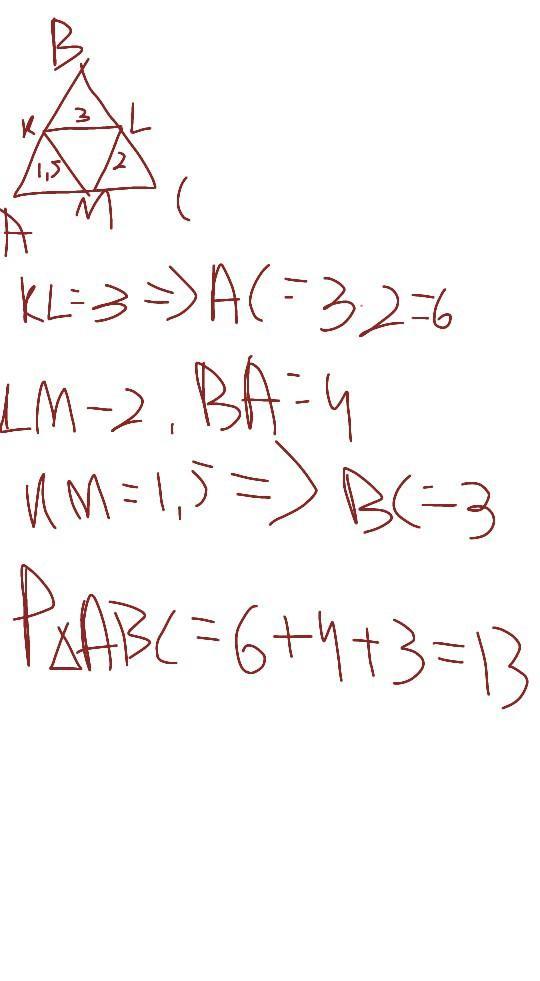 B
K 3 L
1,5 2
A M C
KL=3 => AC=3·2=6
LM-2, BA=4
KM=1,5 => BC=3
P△ABC=6+4+3=13